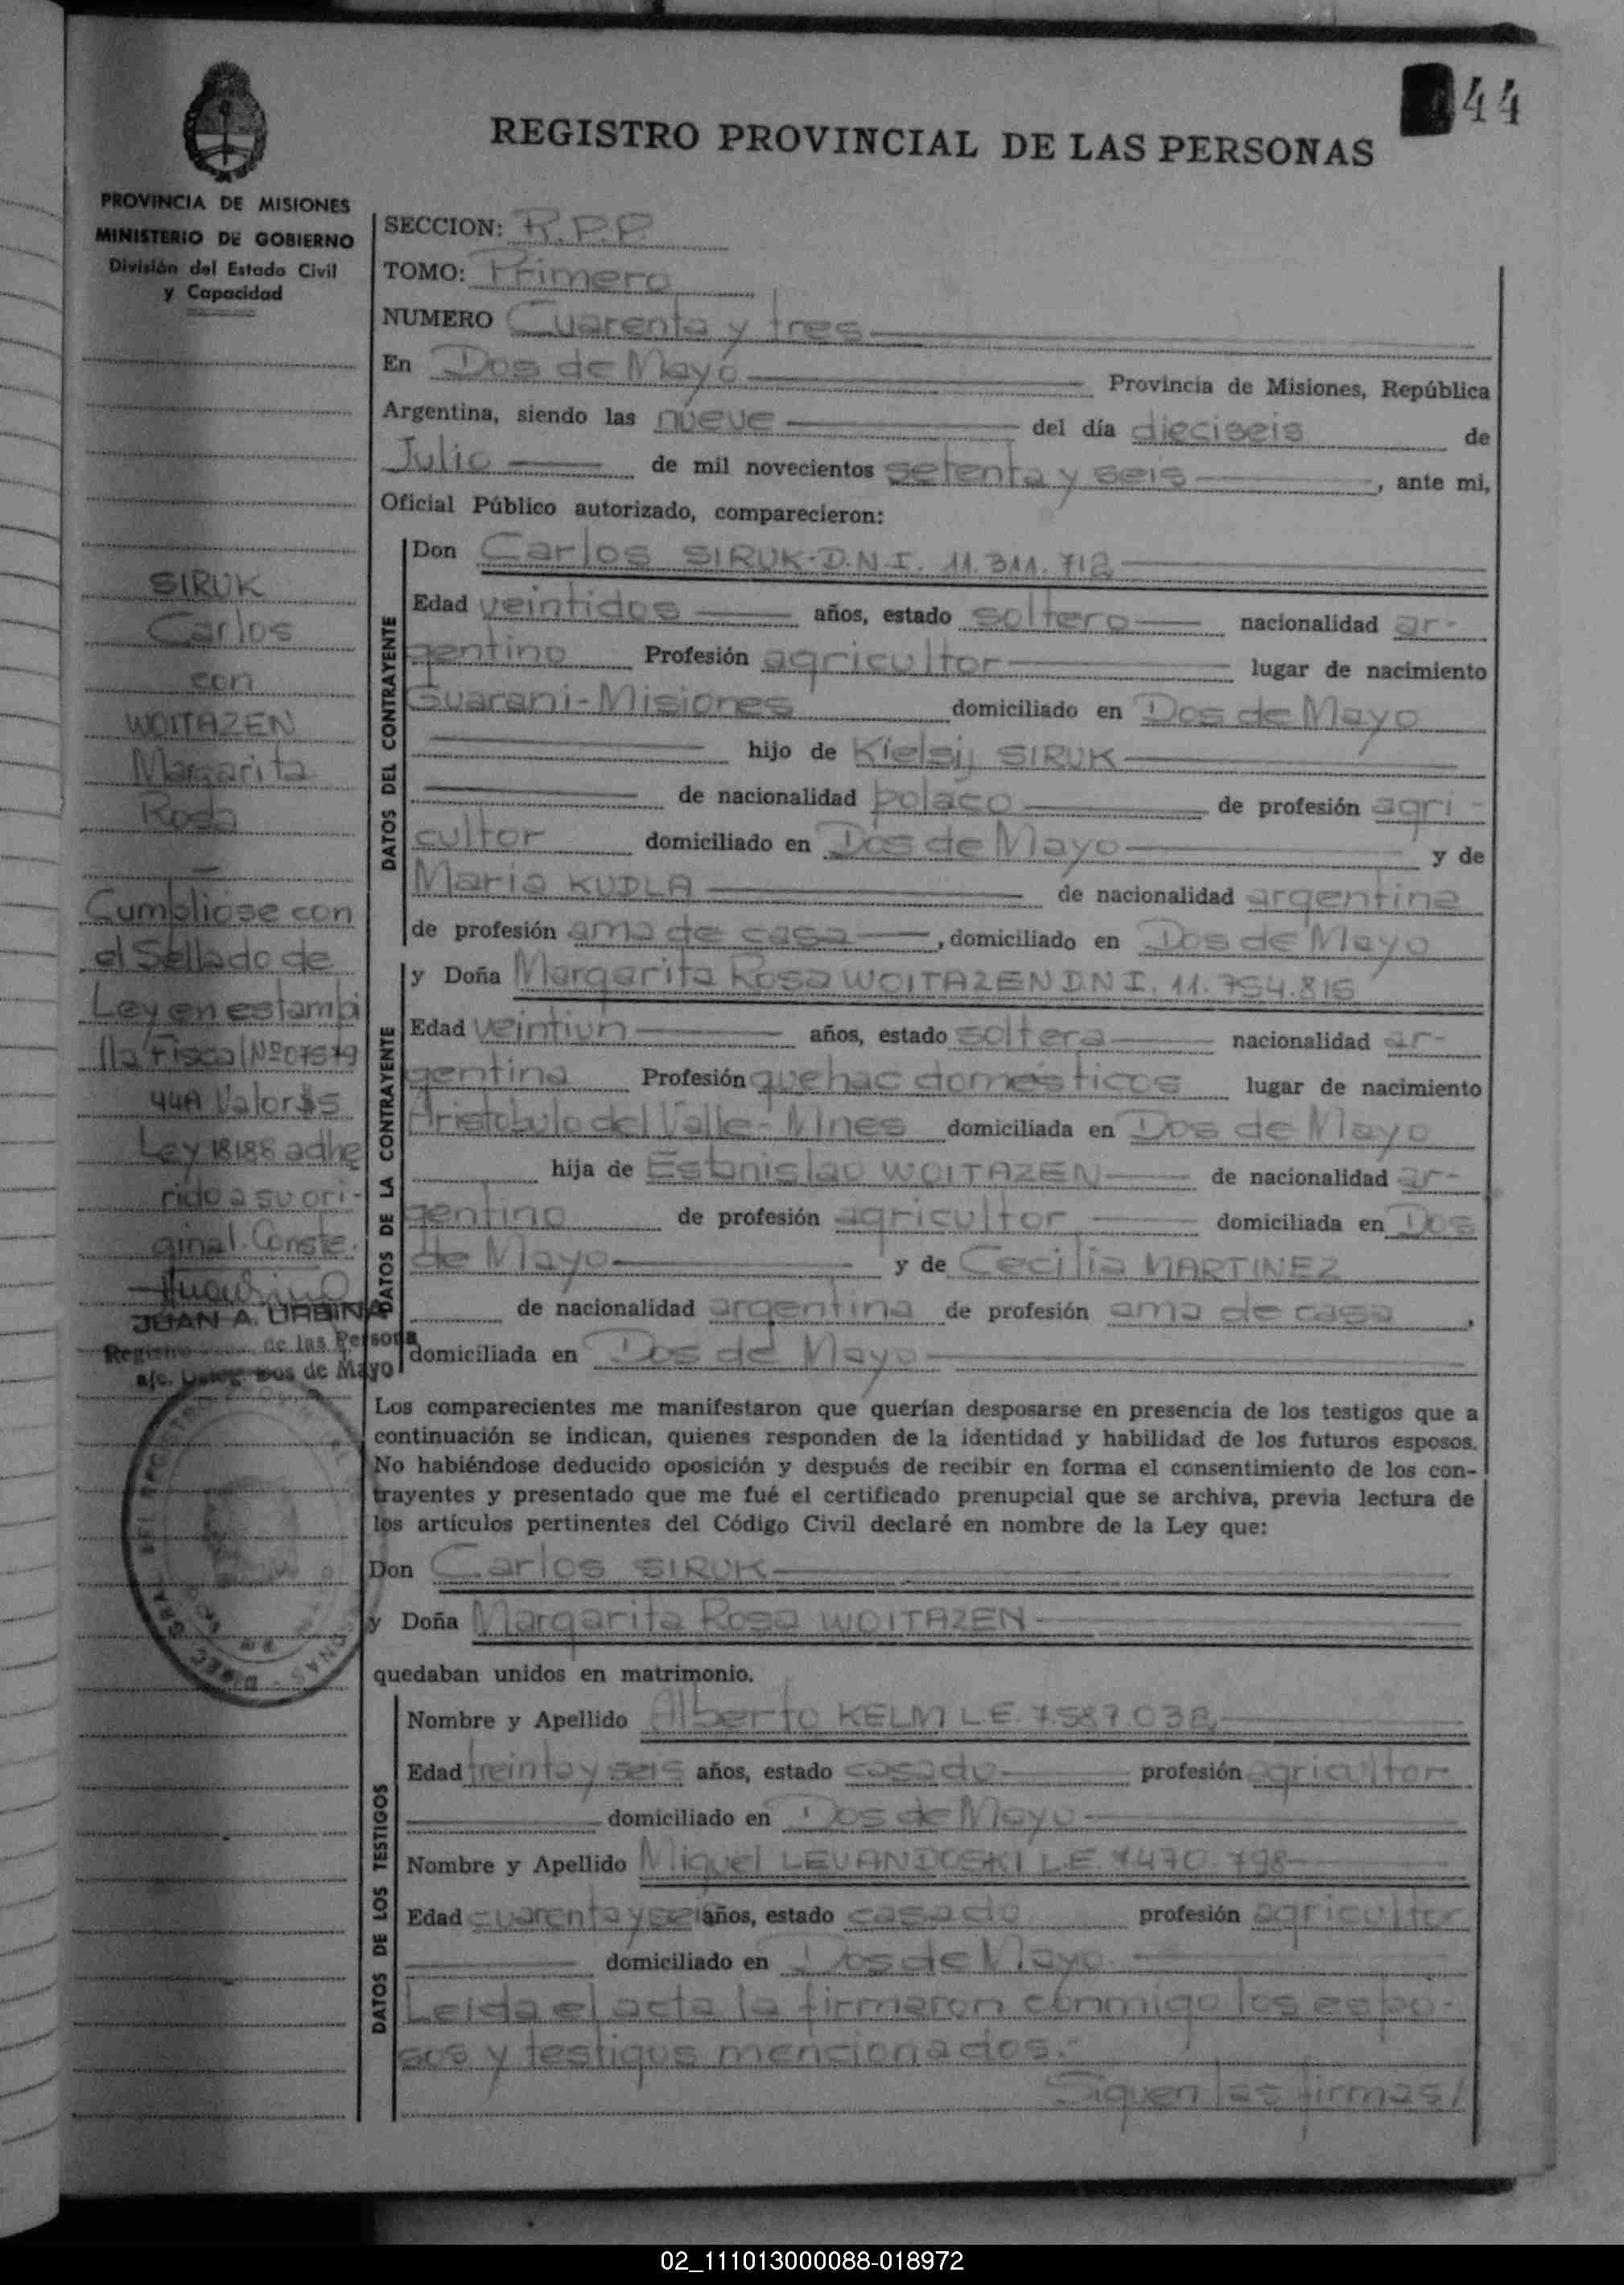 44
REGISTRO PROVINCIAL DE LAS PERSONAS
PROVINCIA DE MISIONES
MINISTERIO DE GOBIERNO
División del Estado Civil
y Capacidad
SECCION: R.P.P.
TOMO: Primero
NUMERO Cuarenta y tres
En Dos de Mayo Provincia de Misiones, República
Argentina, siendo las nueve del día dieciseis de
Julio de mil novecientos setenta y seis, ante mi,
Oficial Público autorizado, comparecieron:
SIRUK
Carlos
con
WOITAZEN
Margarita
Rosa
Cumpliose con
el Sellado de
Ley en estampi
lla Fiscal Nº 07579
44A Valor $5
Ley 18188 adhe
rido a su ori-
ginal. Conste.
JUAN A. URBINA
Registro de las Persona
a/c. Deleg. Dos de Mayo
DATOS DEL CONTRAYENTE
Don Carlos SIRUK-D.N.I. 11.311.712
Edad veintidos años, estado soltero nacionalidad ar-
gentino Profesión agricultor lugar de nacimiento
Guarani-Misiones domiciliado en Dos de Mayo
hijo de Kielsij SIRUK
de nacionalidad polaco de profesión agri-
cultor domiciliado en Dos de Mayo y de
Maria KUDLA de nacionalidad argentina
de profesión ama de casa, domiciliado en Dos de Mayo
DATOS DE LA CONTRAYENTE
y Doña Margarita Rosa WOITAZEN D.N.I. 11.754.816
Edad veintiun años, estado soltera nacionalidad ar-
gentina Profesión quehac domésticos lugar de nacimiento
Aristobulo del Valle-Mnes domiciliada en Dos de Mayo
hija de Estanislao WOITAZEN de nacionalidad ar-
gentino de profesión agricultor domiciliada en Dos
de Mayo y de Cecilia MARTINEZ
de nacionalidad argentina de profesión ama de casa,
domiciliada en Dos de Mayo
Los comparecientes me manifestaron que querían desposarse en presencia de los testigos que a
continuación se indican, quienes responden de la identidad y habilidad de los futuros esposos.
No habiéndose deducido oposición y después de recibir en forma el consentimiento de los con-
trayentes y presentado que me fué el certificado prenupcial que se archiva, previa lectura de
los artículos pertinentes del Código Civil declaré en nombre de la Ley que:
Don Carlos SIRUK
y Doña Margarita Rosa WOITAZEN
quedaban unidos en matrimonio.
DATOS DE LOS TESTIGOS
Nombre y Apellido Alberto KELM L.E. 7.587.038
Edad treinta y seis años, estado casado profesión agricultor
domiciliado en Dos de Mayo
Nombre y Apellido Miguel LEVANDOSKI L.E. 7.470.798
Edad cuarenta y seis años, estado casado profesión agricultor
domiciliado en Dos de Mayo
Leida el acta la firmaron conmigo los espo-
sos y testigos mencionados.-
Siguen las firmas/
02_111013000088-018972